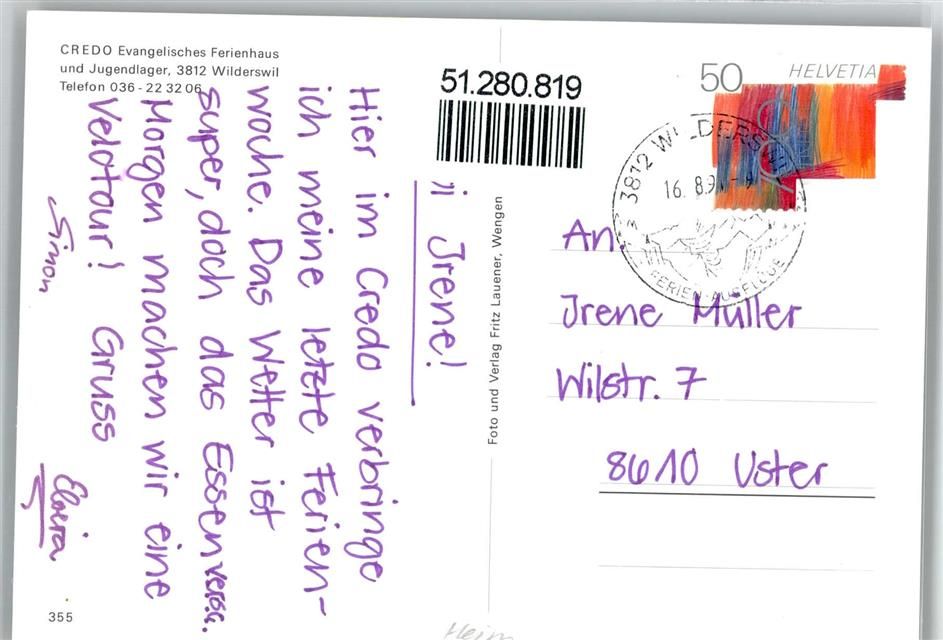 CREDO Evangelisches Ferienhaus
und Jugendlager, 3812 Wilderswil
Telefon 036 - 22 32 06
51.280.819
50
HELVETIA
3812 WILDERSWIL
16. 8.9
FERIEN-AUSFLÜGE
ii Irene!
Hier im Credo verbringe
ich meine letzte Ferien-
woche. Das Wetter ist
super, doch das Essen
Morgen machen wir eine
Velotour! Gruss
Simon
Elvira
Foto und Verlag Fritz Lauener, Wengen
An
Irene Müller
Wilstr. 7
8610 Uster
355
Heim